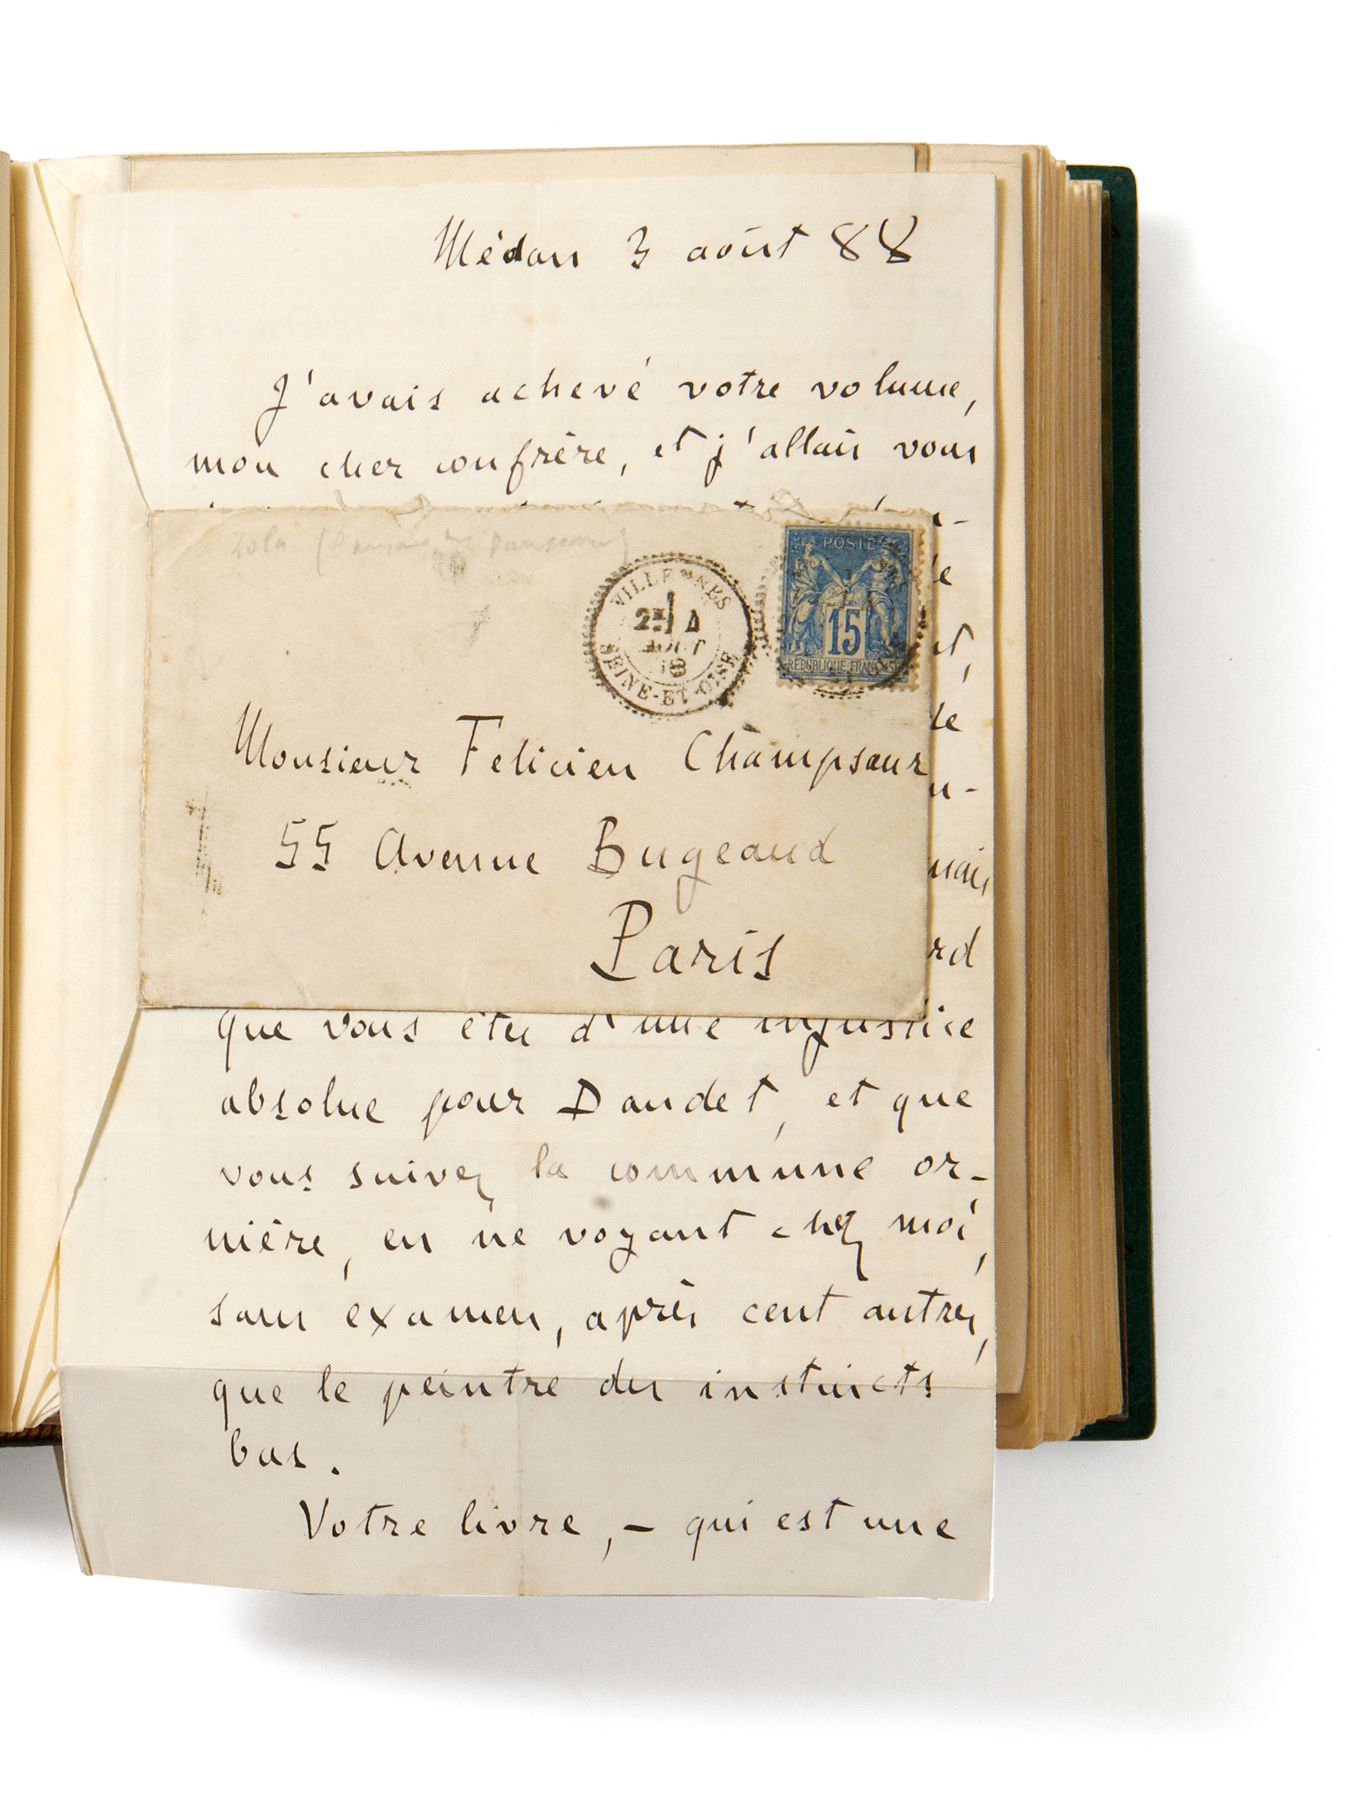 Médan 3 août 88
J'avais achevé votre volume,
mon cher confrère, et j'allais vous
Zola
VILLENNES
2E 4
AOUT
SEINE-ET-OISE
POSTES
15
REPUBLIQUE FRANÇAISE
Monsieur Felicien Champsaur
55 Avenue Bugeaud
Paris
que vous êtes d'une injustice
absolue pour Daudet, et que
vous suivez la commune or-
nière, en ne voyant chez moi,
sans examen, après cent autres,
que le peintre des instincts
bas.
Votre livre, – qui est une